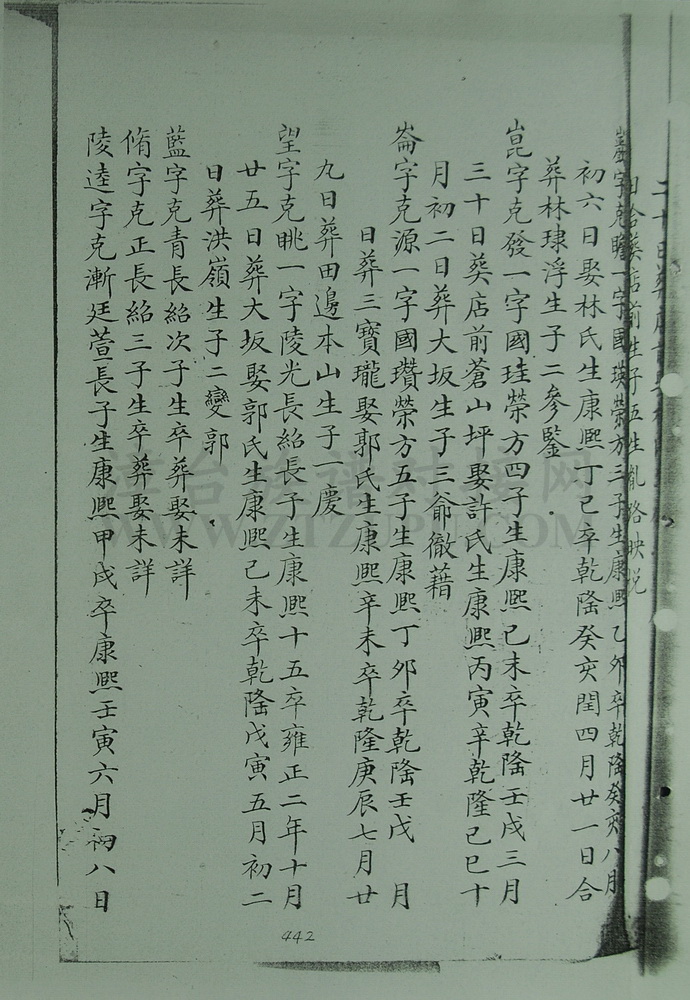 日合葬店前生子五生亂路映兌
字克瞻一字國瑛榮方三子生康熙乙夘卒乾隆癸亥八月
初六日娶林氏生康熙丁巳卒乾隆癸亥閏四月廿一日合
葬林埭浮生子二參鋻
崑字克發一字國珪榮方四子生康熙己未卒乾隆壬戌三月
三十日葬店前蒼山坪娶許氏生康熙丙寅卒乾隆己巳十
月初二日葬大坂生子三爺徹藉
崙字克源一字國瓚榮方五子生康熙丁夘卒乾隆壬戊 月
日葬三寶瓏娶郭氏生康熙辛未卒乾隆庚辰七月廿
九日葬田邊本山生子一慶
望字克眺一字陵光長紹長子生康熙十五卒雍正二年十月
廿五日葬大坂娶郭氏生康熙己未卒乾隆戊寅五月初二
日葬洪嶺生子二變郭
藍字克青長紹次子生卒葬娶未詳
脩字克正長紹三子生卒葬娶未詳
陵逵字克漸廷萱長子生康熙甲戌卒康熙壬寅六月初八日
442
WWW.ZTZUPU.COM